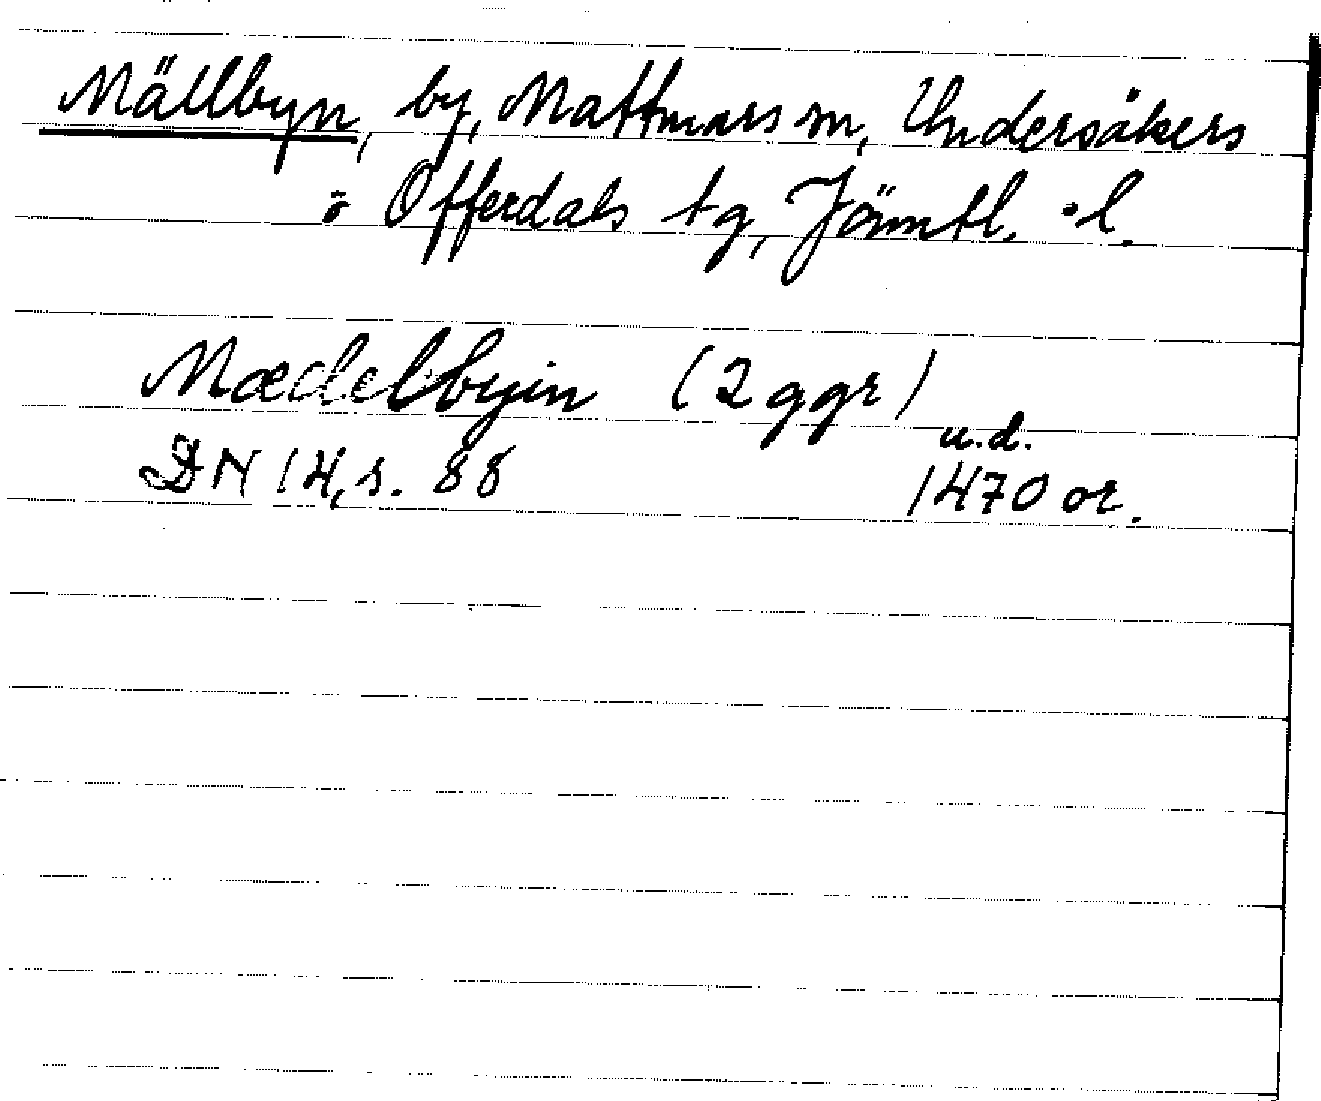 Mällbyn, by, Mattmars sn, Undersåkers
o Offerdals tg, Jämtl. l.
Mædelbyin (2 ggr)
u.d.
DN 14, s. 88 1470 or.